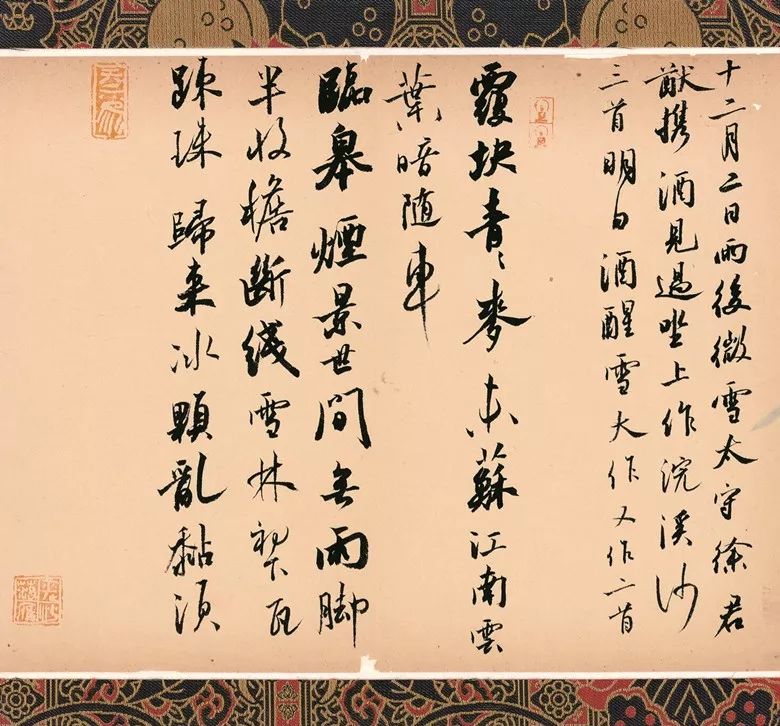 十二月二日雨後微雪太守徐君
猷携酒見過坐上作浣溪沙
三首明日酒醒雪大作又作二首
覆块青〻麥未蘇江南雲
葉暗随車
臨皋煙景世間無雨脚
半收檐斷綫雪林初下瓦
踈珠歸来冰顆亂黏須